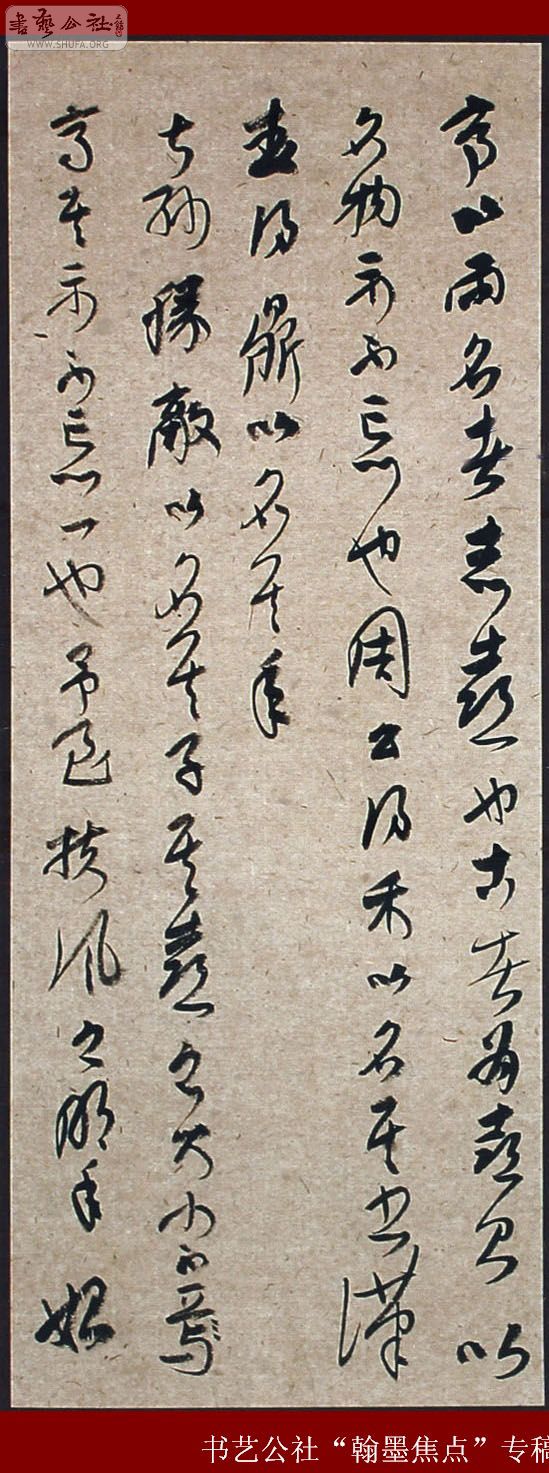 書藝公社
WWW.SHUFA.ORG
亭以雨名者志喜也古者有喜則以
名物示不忘也周公得禾以名其書漢
武得鼎以名其年
叔孫勝敵以名其子其喜之大小不
其示不忘一也予至扶風之明年始
书艺公社“翰墨焦点”专稿